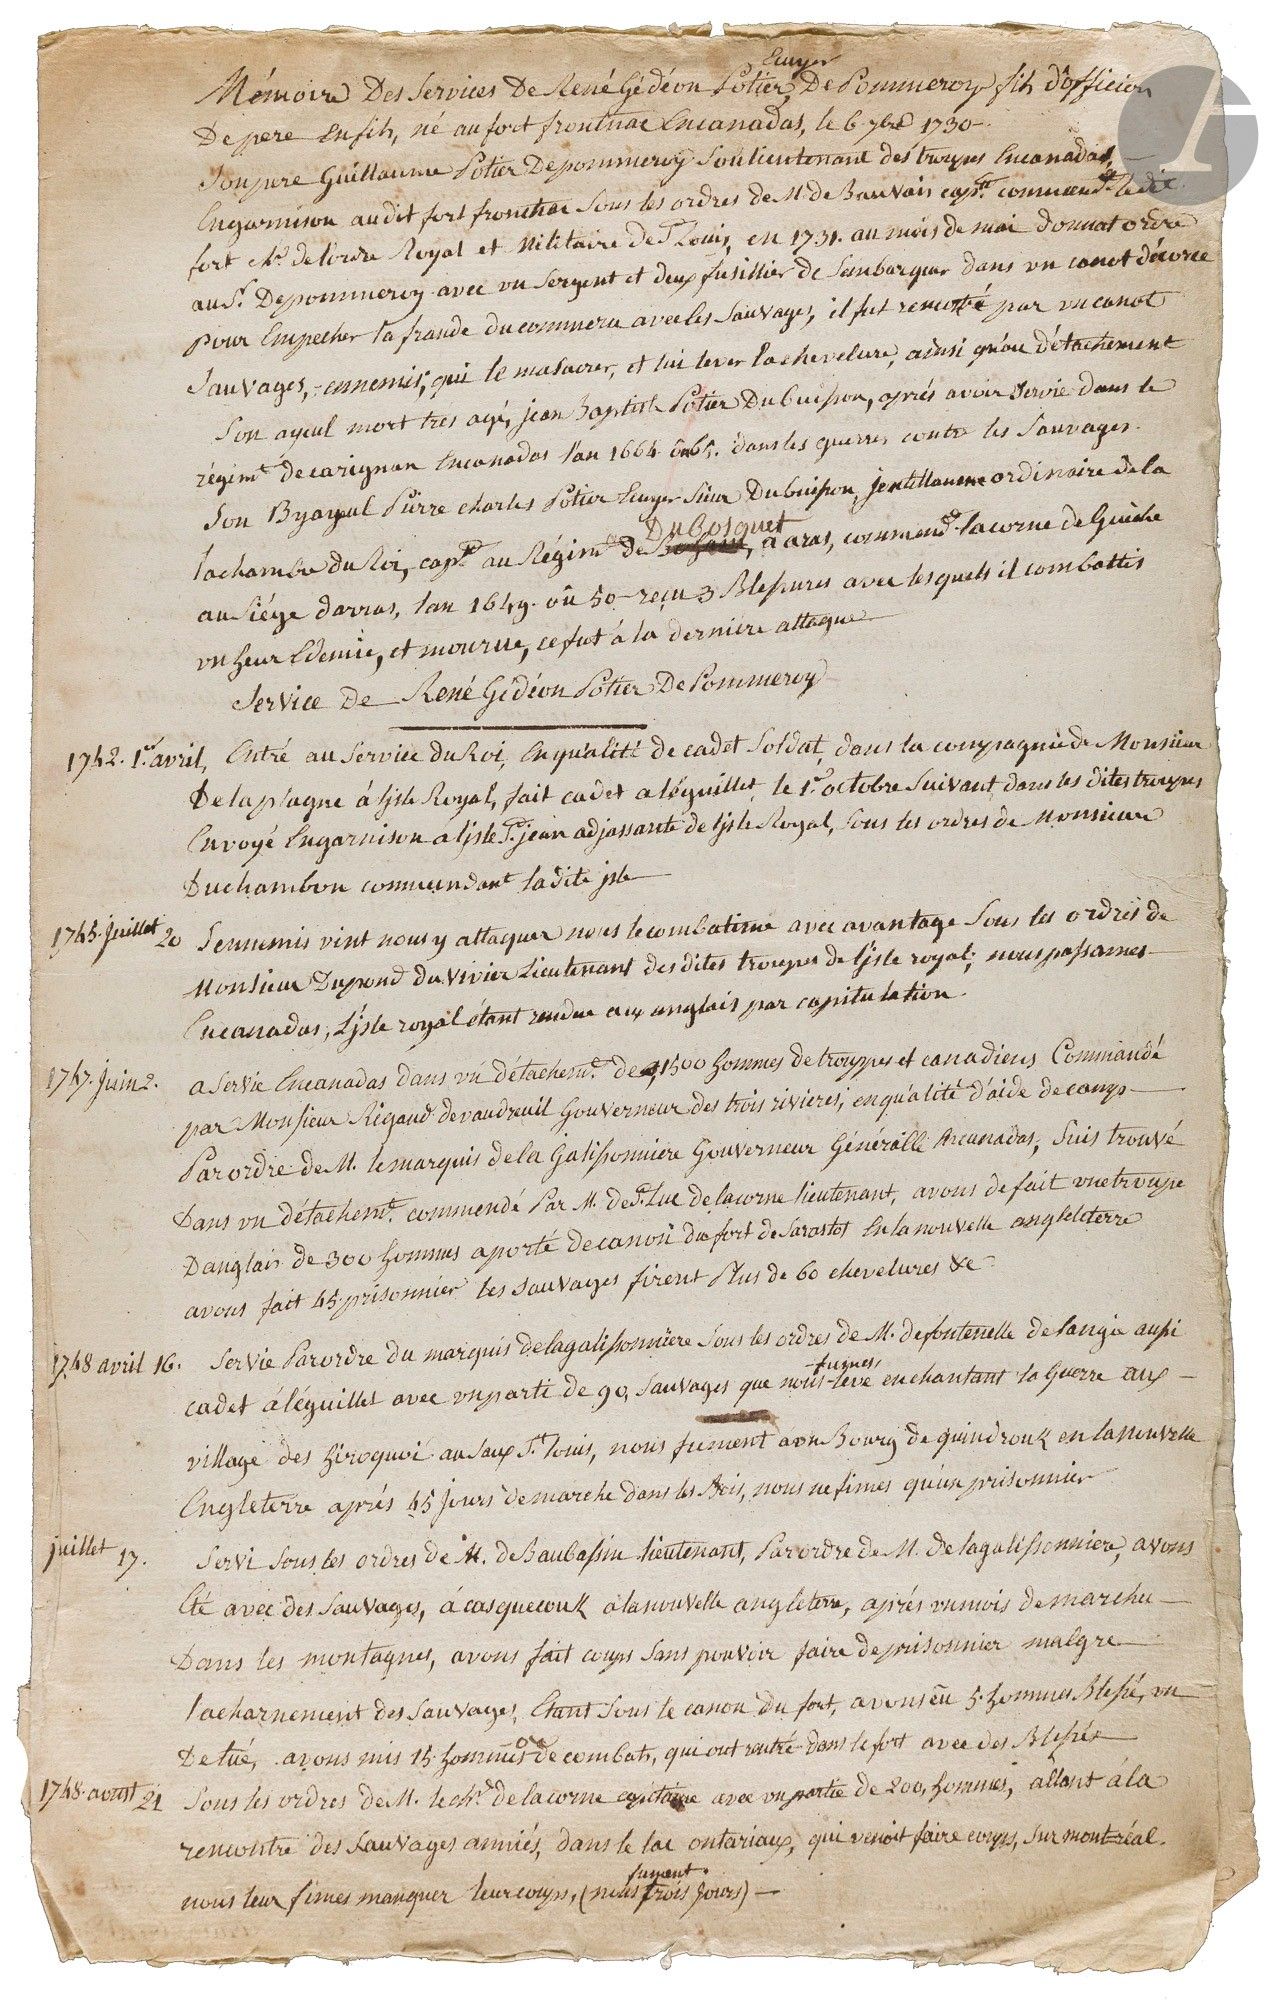 Ecuyer
Mémoire Des Services De René Gédéon Potier, De Pommeroy fils d'officier
De pere en fils, né au fort frontnac En canadas, le 6 7bre 1730
Son pere Guillaume Potier De pommeroy Soulieutenant des troupes En canadas,
En garnison au dit fort frontnac Sous les ordres de M. de Bauvais capne. commendt. le dit
fort chr. de l'ordre Royal et Militaire de St Louis, en 1731. au mois de mai donnat ordre
au Sr. De pommeroy avec un Sergent et deux fusillier de Sembarquer dans un canot d'écorce
pour Empecher la fraude du commerce avec les Sauvages, il fut rencotré par un canot
Sauvages, ennemis, qui le masacrer, et lui lever la chevelure, ainsi qu'au détachement
Son ayeul mort tres agé, jean Baptiste Potier Dubuisson, aprés avoir Servie dans le
régimt. de carignan En canadas l'an 1664 à 65. dans les guerres contre les Sauvages.
Son Byayeul Pierre charles Potier Ecuyer Sieur Dubuisson, jentillomme ordinaire de la
Dubosquet
la chambre du Roi, capne au Régimt de, à aras, commendt la corne de Guiche
au Siége darras, l'an 1649 où 50 reçu 3 Blessures avec les quels il combattis
un heur Edemie, et mourue, ce fut à la derniere attaque
Service De René Gédéon Potier De Pommeroy
1742. 1er. avril, Entré au Service du Roi, En qualité de cadet Soldat, dans la compagnie de Monsieur
De la plagne à ljsle Royal, fait cadet a léguillet, le 1er. octobre Suivant, dans les dites troupes
Envoyé En garnison a ljsle St. jean adjassante de ljsle Royal, Sous les ordres de Monsieur
Duchambon commendant la dite jsle
1745. juillet 20 l'ennemis vint nous y attaquer nous le combatime avec avantage Sous les ordres de
Monsieur Dupond du vivier Lieutenant des dites troupes de ljsle royal; nous passames
En canadas, ljsle royal étant rendue aux anglais par capitulation.
1747. juin 2. a Servie En canadas dans un détachemt. de 1500 hommes de trouppes et canadiens Commandé
par Monsieur Rigaud de vaudreuil Gouverneur des trois rivieres; en qualité d'aide de camp
Par ordre de M. le marquis de la Galissonniere Gouverneur Généralle En canadas, Suis trouvé
Dans un détachemt. commendé Par M. de St Luc de la corne lieutenant, avons defait une troupe
D'anglais de 300 hommes a porté de canon du fort de Sarastot En la nouvelle angleterre
avons fait 45 prisonnier les Sauvages firent Plus de 60 chevelures &c
1748 avril 16. Servie Par ordre du marquis de la galissonniere Sous les ordres de M. de fontenelle de langie aussi
fumes
cadet à léguillet avec un parti de 90, Sauvages que nous levé en chantant la Guerre aux
village des hiroquoi au Saux St. Louis, nous fument a un Bourg de quindrouk en la nouvelle
Engleterre aprés 45 jours de marche dans les Bois, nous ne fimes qu'un prisonnier
juillet 17. Servi Sous les ordres de M. de Baubassin lieutenant, Par ordre de M. de la galissonniere, avons
Eté avec des Sauvages, à casquecouk a la nouvelle angleterre, aprés un mois de marche
Dans les montagnes, avons fait coups Sans pouvoir faire de prisonnier malgre
l'acharnement des Sauvages, Etant Sous le canon du fort, avons eu 5 hommes Blessé, un
or
De tué, avons mis 15 hommes de combats, qui ont rentré dans le fort avec des Blessés
1748. aoust 21 Sous les ordres de M. le chr. de la corne capitaine avec un partie de 200, hommes, allant à la
rencontre des Sauvages anniés, dans le lac ontariaux, qui venoit faire coups, Sur montréal.
fument
nous leur fimes manquer leur coups, (nous trois jours)